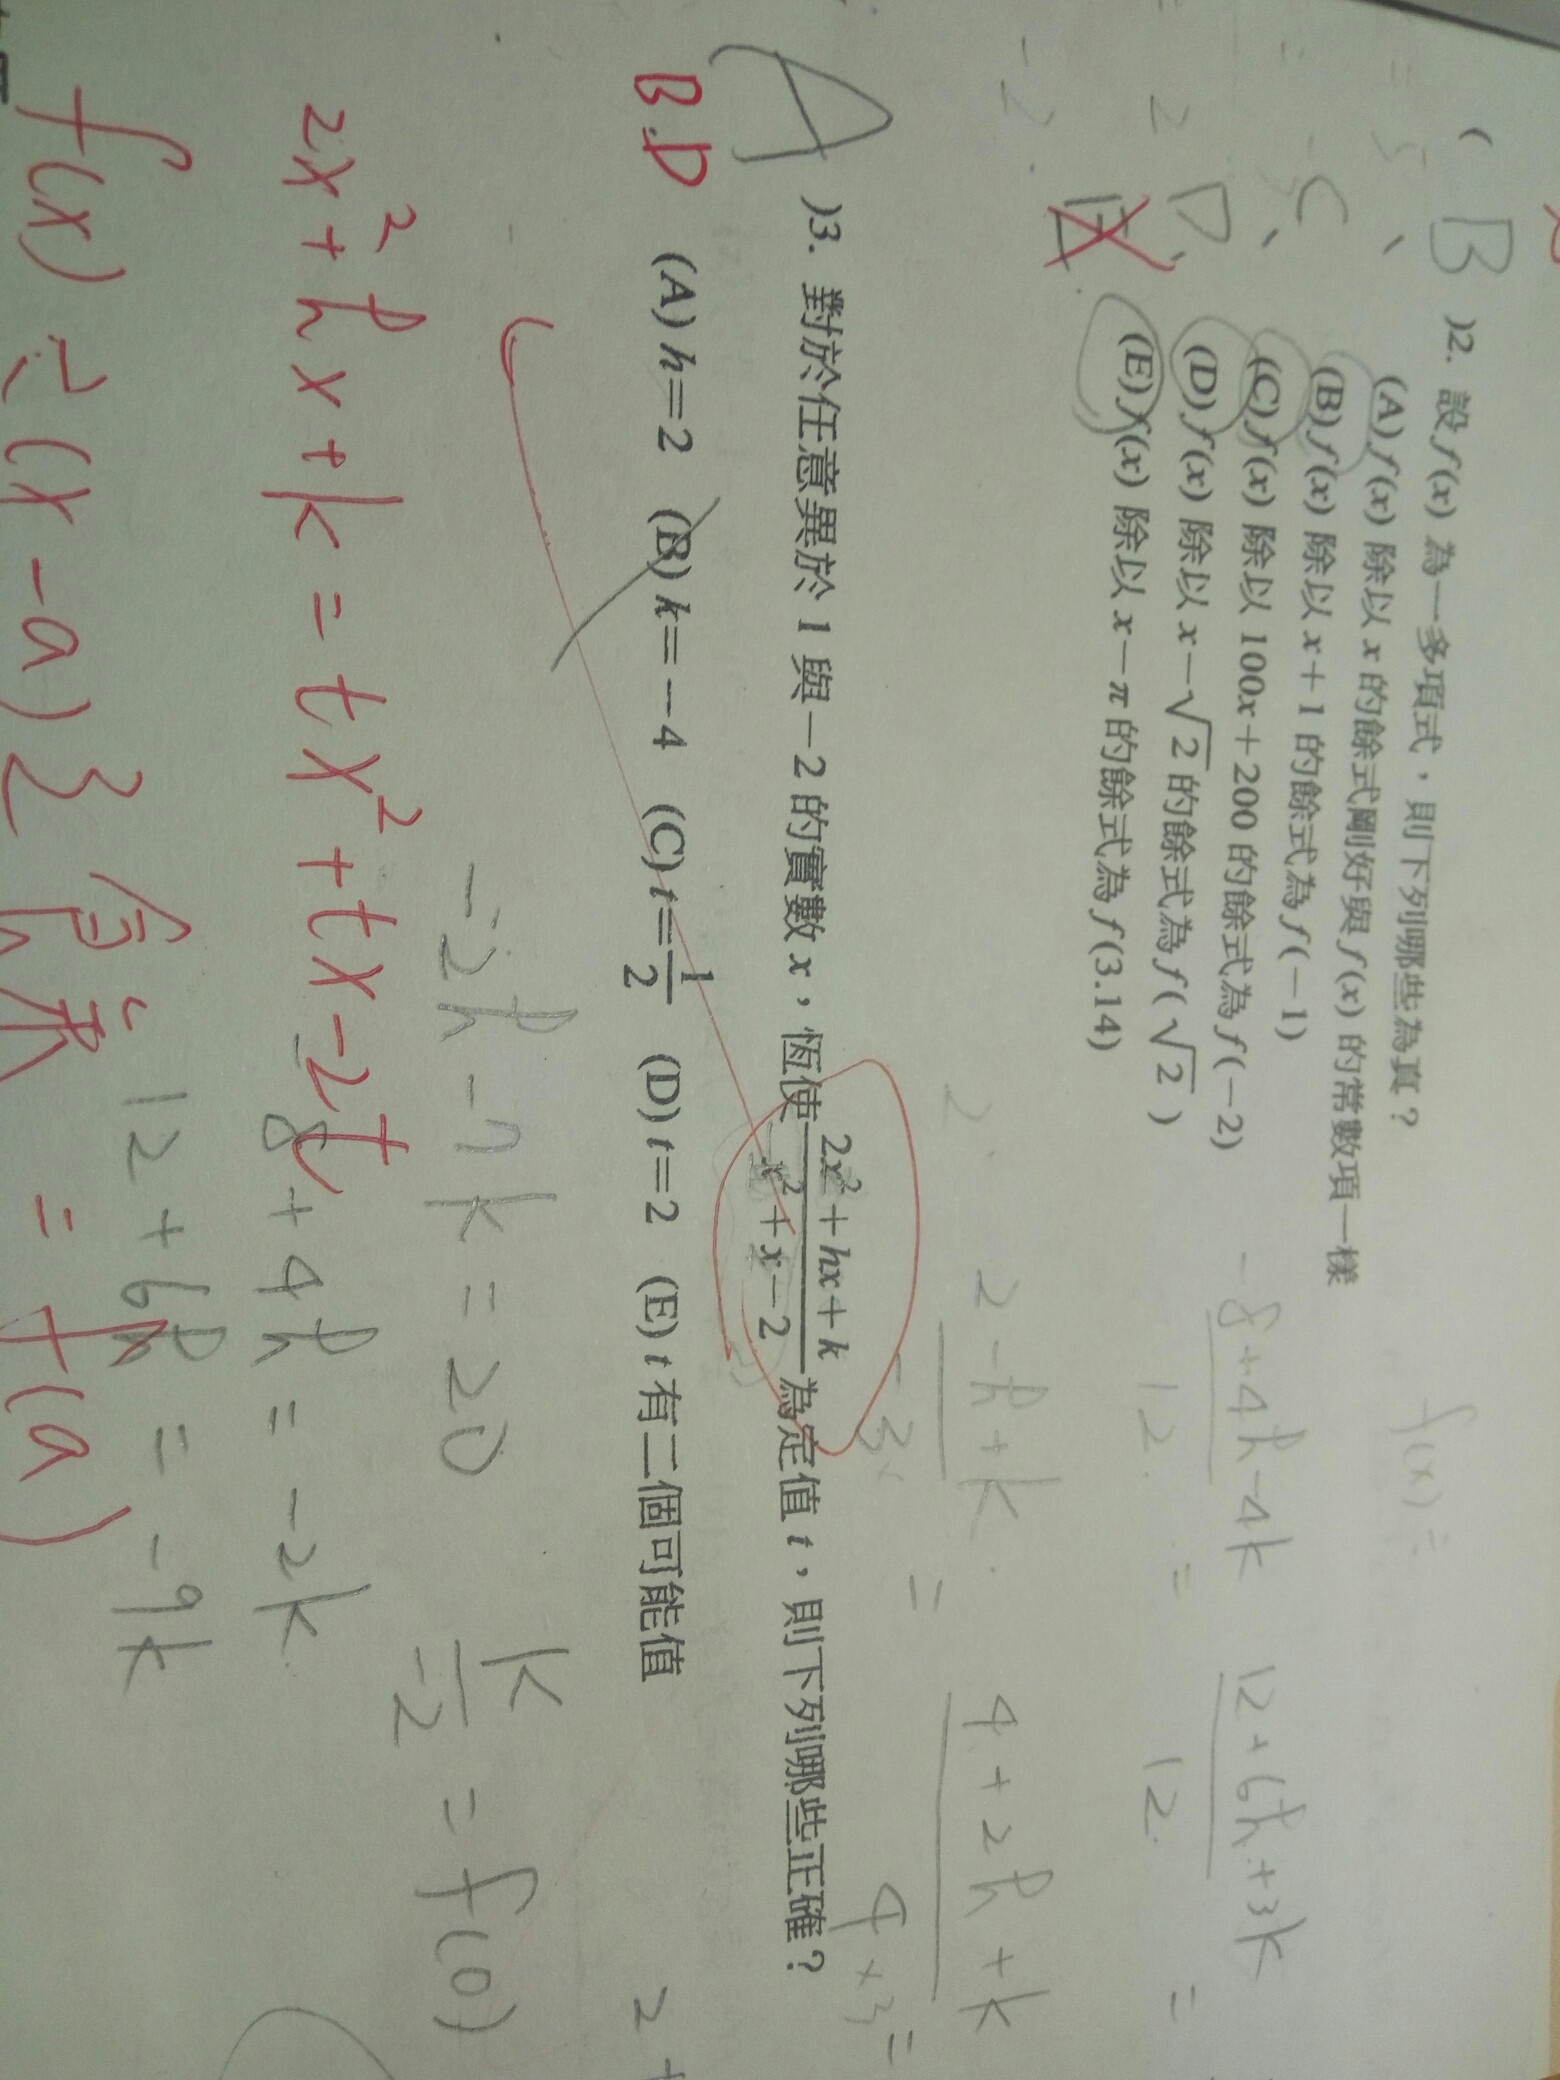 ( B )2. 設 f(x) 為一多項式，則下列哪些為真？
(A) f(x) 除以 x 的餘式剛好與 f(x) 的常數項一樣
(B) f(x) 除以 x+1 的餘式為 f(−1)
(C) f(x) 除以 100x+200 的餘式為 f(−2)
(D) f(x) 除以 x−√2 的餘式為 f(√2)
(E) f(x) 除以 x−π 的餘式為 f(3.14)
、C、D、E
f(x) =
-8+4h-4k / 12 = 12+6h+3k / 12 =
2-h+k = 4+2h+k
4×3 =
A )3. 對於任意異於 1 與 −2 的實數 x，恆使 (2x²+hx+k)/(x²+x−2) 為定值 t，則下列哪些正確？
B.D
(A) h=2 (B) k=−4 (C) t=1/2 (D) t=2 (E) t 有二個可能值
-2h-7k=20
k/-2 = f(0)
2x²+hx+k=tx²+tx-2t
8+4h=-2k
12+6h=-9k
f(x) ÷ (x-a) 之餘式 = f(a)